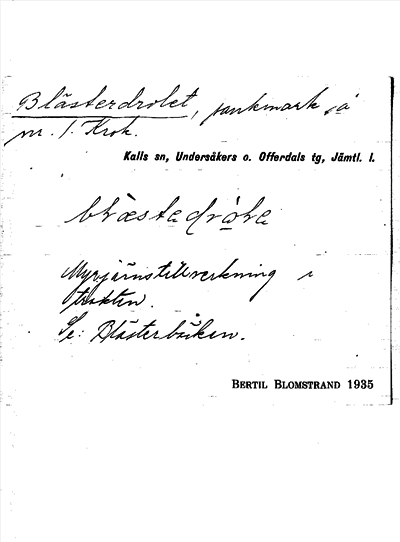 Blästerdrolet, sankmark på
m. 1. Krok.
Kalls sn, Undersåkers o. Offerdals tg, Jämtl. l.
Myrjärnstillverkning i
trakten.
Se: Blästerbäcken.
BERTIL BLOMSTRAND 1935